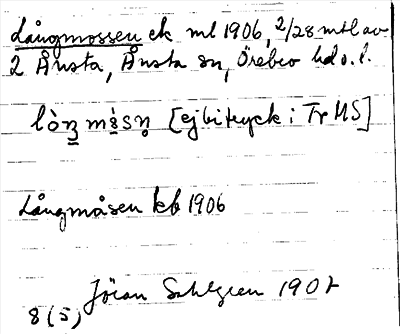 Långmossen ek ml 1906, 2/28 mtl av
2 Ånsta, Ånsta sn, Örebro hd o. l.
lòŋ mɜ̀sn̥ [ej bitryck i Tr MS]
Långmåsen kb 1906
Jöran Sahlgren 1907
8 (5)